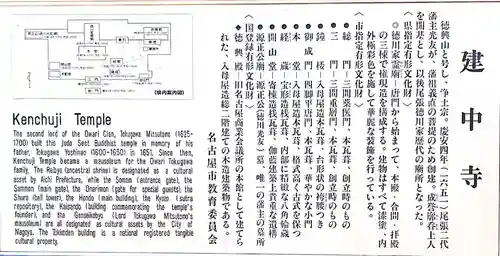 建中寺
徳興山と号し、浄土宗。慶安四年（一六五一）尾張二代
藩主光友が、藩祖義直の菩提のため創建。成誉廓呑上人
を開基とし、以後尾張徳川家歴代の廟所となった。
〈県指定有形文化財〉
◎徳川家霊廟―唐門から始まって、本殿・合間・拝殿
の三棟で権現造を構成する。建物はすべて漆塗、内
外極彩色を施して華麗な装飾を行っている。
〈市指定有形文化財〉
●総門―三間薬医門、本瓦葺、創立時のもの
●三門―三間重層門、本瓦葺、創立時のもの
●鐘楼―入母屋造本瓦葺、台形状の袴腰つき
●御成門―四脚平唐門、本瓦葺、華やかな小門
●本堂―入母屋造本瓦葺、格式高い様式を保つ
●経蔵―宝形造桟瓦葺、内部に精緻な八角輪蔵
●開山堂―寄棟造桟瓦葺、伽藍建築上貴重な遺構
●源正公廟―源正公(徳川光友)墓、唯一の藩主の墓所
〈国登録有形文化財〉
●徳興殿―旧名古屋商業会議所の本館として建てら
れた、入母屋造総二階建ての木造建築物である。
名古屋市教育委員会
境内案内図
Kenchuji Temple
The second lord of the Owari Clan, Tokugawa Mitsutomo (1625-
1700) built this Jodo Sect Buddhist temple in memory of his
father, Tokugawa Yoshinao (1600-1650) in 1651. Since then,
Kenchuji Temple became a mausoleum for the Owari Tokugawa
family. The Rebyo (ancestral shrine) is designated as a cultural
asset by Aichi Prefecture, while the Somon (entrance gate), the
Sanmon (main gate), the Onarimon (gate for special guests) the
Shuro (bell tower), the Hondo (main building), the Kyozo (sutra
repository), the Kaisando (building commemorating the temple's
founder), and the Genseikobyo (Lord Tokugawa Mitsutomo's
mausoleum) are all designated as cultural assets by the City of
Nagoya. The Tokkoden building is a national registered tangible
cultural property.